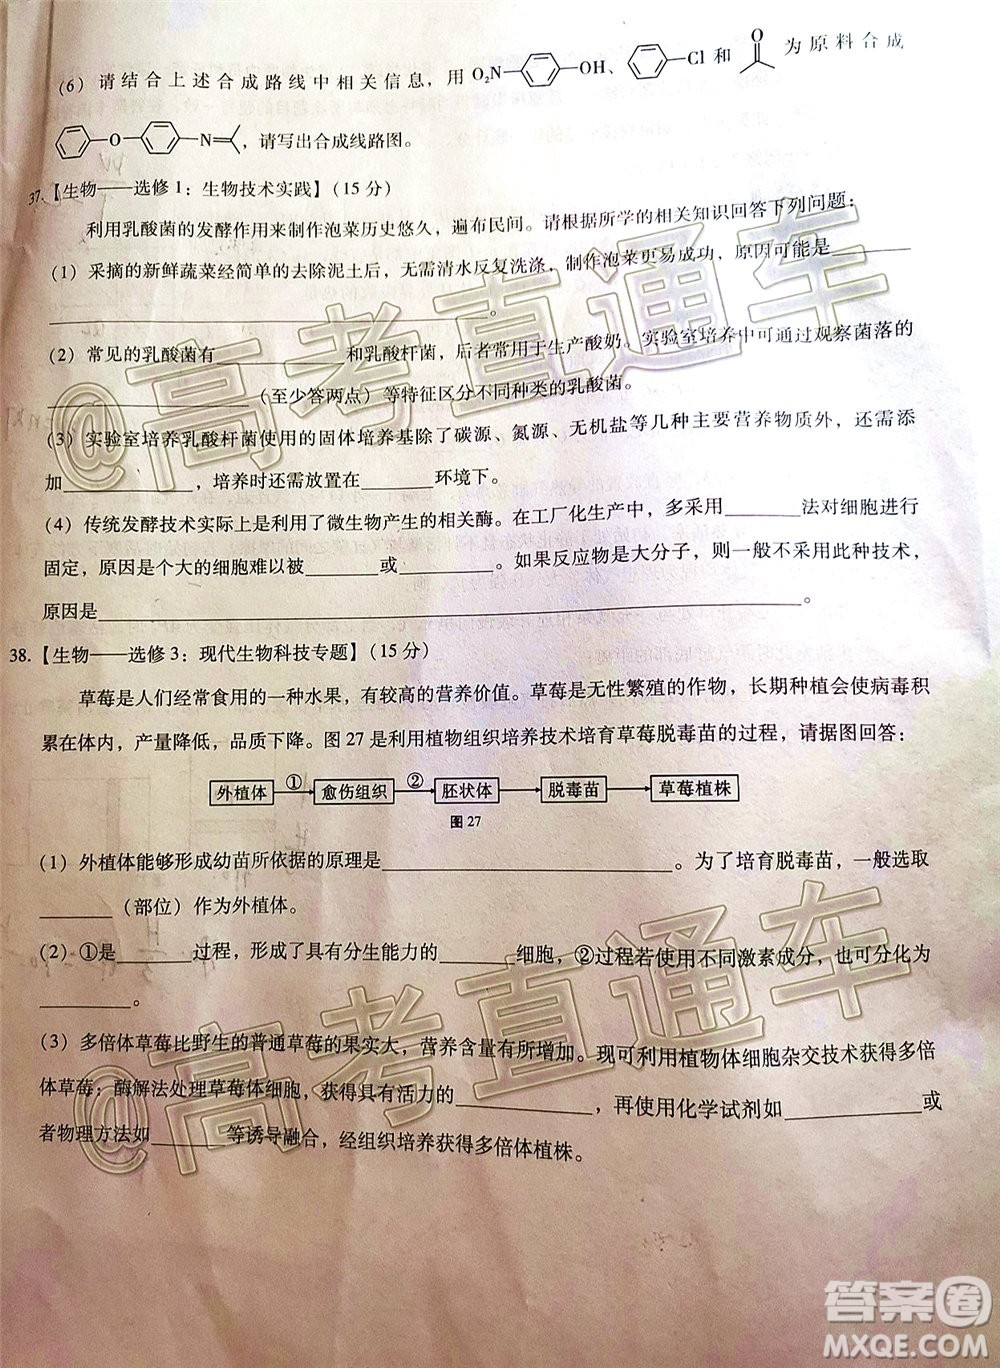 (6) 请结合上述合成路线中相关信息，用 O₂N— —OH、 —Cl 和 O 为原料合成
—O— —N= ，请写出合成线路图。
37.【生物——选修1：生物技术实践】(15分)
利用乳酸菌的发酵作用来制作泡菜历史悠久，遍布民间。请根据所学的相关知识回答下列问题：
(1) 采摘的新鲜蔬菜经简单的去除泥土后，无需清水反复洗涤，制作泡菜更易成功，原因可能是________
________________。
(2) 常见的乳酸菌有________和乳酸杆菌，后者常用于生产酸奶。实验室培养中可通过观察菌落的
________________（至少答两点）等特征区分不同种类的乳酸菌。
(3) 实验室培养乳酸杆菌使用的固体培养基除了碳源、氮源、无机盐等几种主要营养物质外，还需添
加________，培养时还需放置在________环境下。
(4) 传统发酵技术实际上是利用了微生物产生的相关酶。在工厂化生产中，多采用________法对细胞进行
固定，原因是个大的细胞难以被________或________。如果反应物是大分子，则一般不采用此种技术，
原因是________________。
38.【生物——选修3：现代生物科技专题】(15分)
草莓是人们经常食用的一种水果，有较高的营养价值。草莓是无性繁殖的作物，长期种植会使病毒积
累在体内，产量降低，品质下降。图27是利用植物组织培养技术培育草莓脱毒苗的过程，请据图回答：
外植体 ① 愈伤组织 ② 胚状体 脱毒苗 草莓植株
图27
(1) 外植体能够形成幼苗所依据的原理是________________。为了培育脱毒苗，一般选取
________（部位）作为外植体。
(2) ①是________过程，形成了具有分生能力的________细胞，②过程若使用不同激素成分，可分化为
________。
(3) 多倍体草莓比野生的普通草莓的果实大，营养含量有所增加。现可利用植物体细胞杂交技术获得多倍
体草莓：酶解法处理草莓体细胞，获得具有活力的________，再使用化学试剂如________或
者物理方法如________等诱导融合，经组织培养获得多倍体植株。
@高考直通车
@高考直通车
答案圈
MXQE.COM